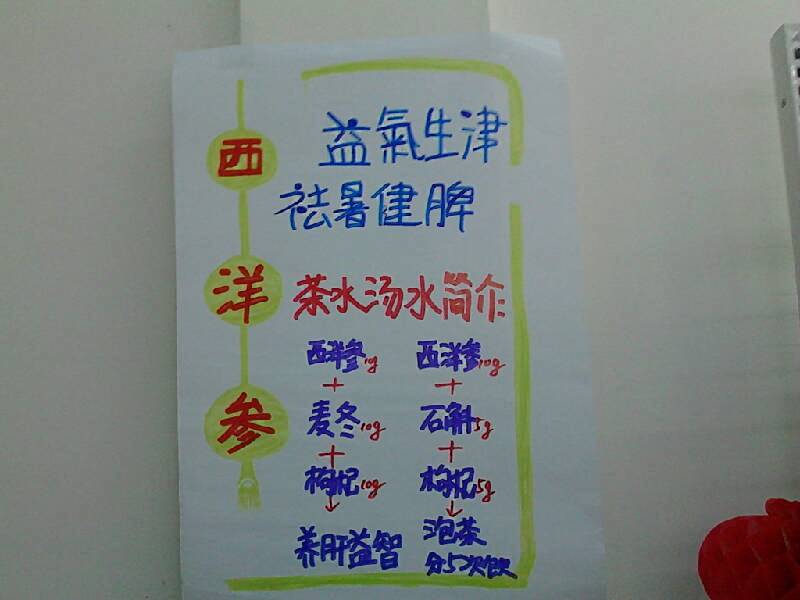 西洋参
益氣生津
祛暑健脾
茶水汤水简介
西洋参1g
+
麦冬10g
+
枸杞10g
↓
养肝益智
西洋参10g
+
石斛5g
+
枸杞5g
↓
泡茶
分5次饮